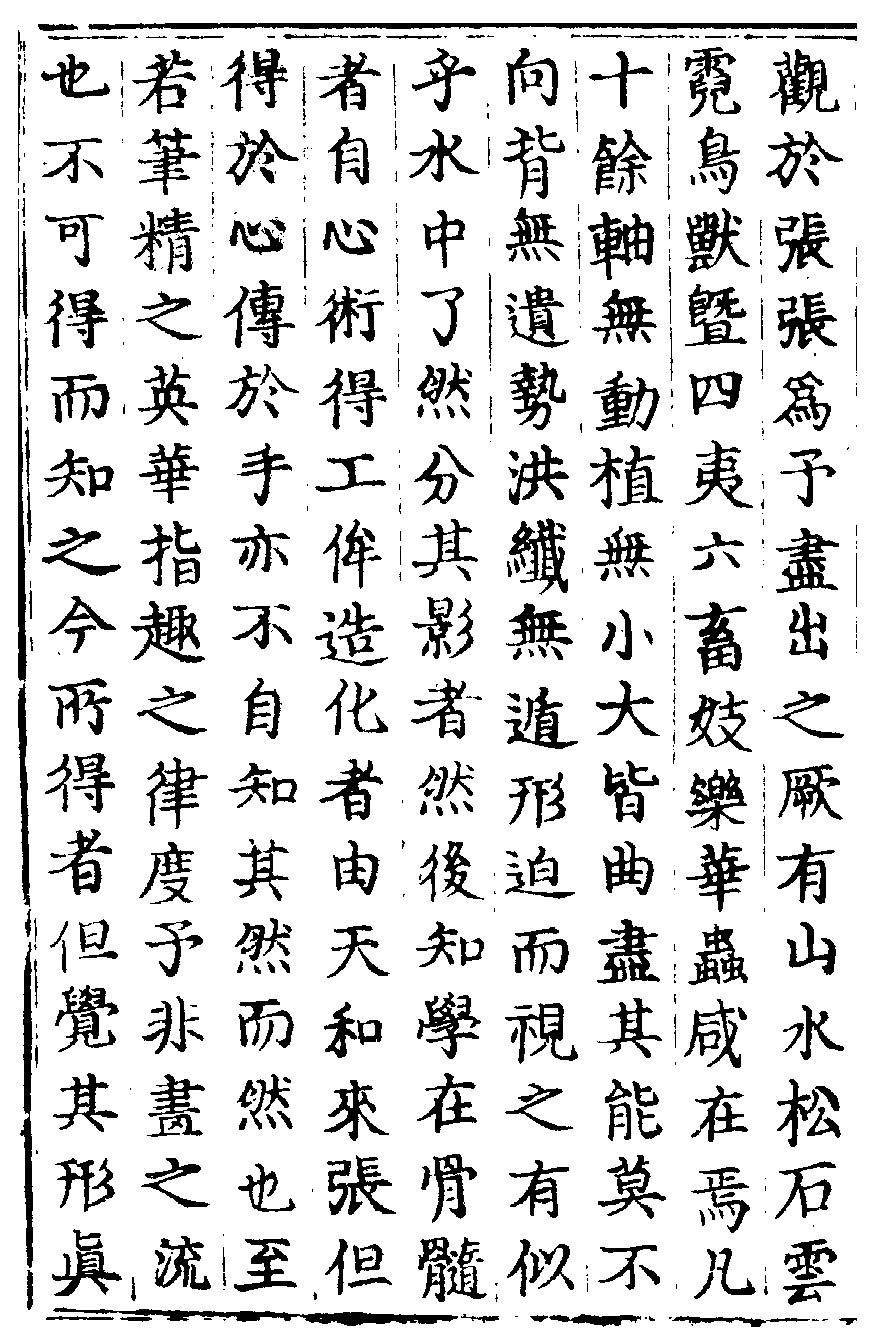 觀於張張爲予盡出之厥有山水松石雲
霓鳥獸曁四夷六畜妓樂華蟲咸在焉凡
十餘軸無動植無小大皆曲盡其能莫不
向背無遺勢洪纖無遁形迫而視之有似
乎水中了然分其影者然後知學在骨髓
者自心術得工侔造化者由天和來張但
得於心傳於手亦不自知其然而然也至
若筆精之英華指趣之律度予非畫之流
也不可得而知之今所得者但覺其形眞